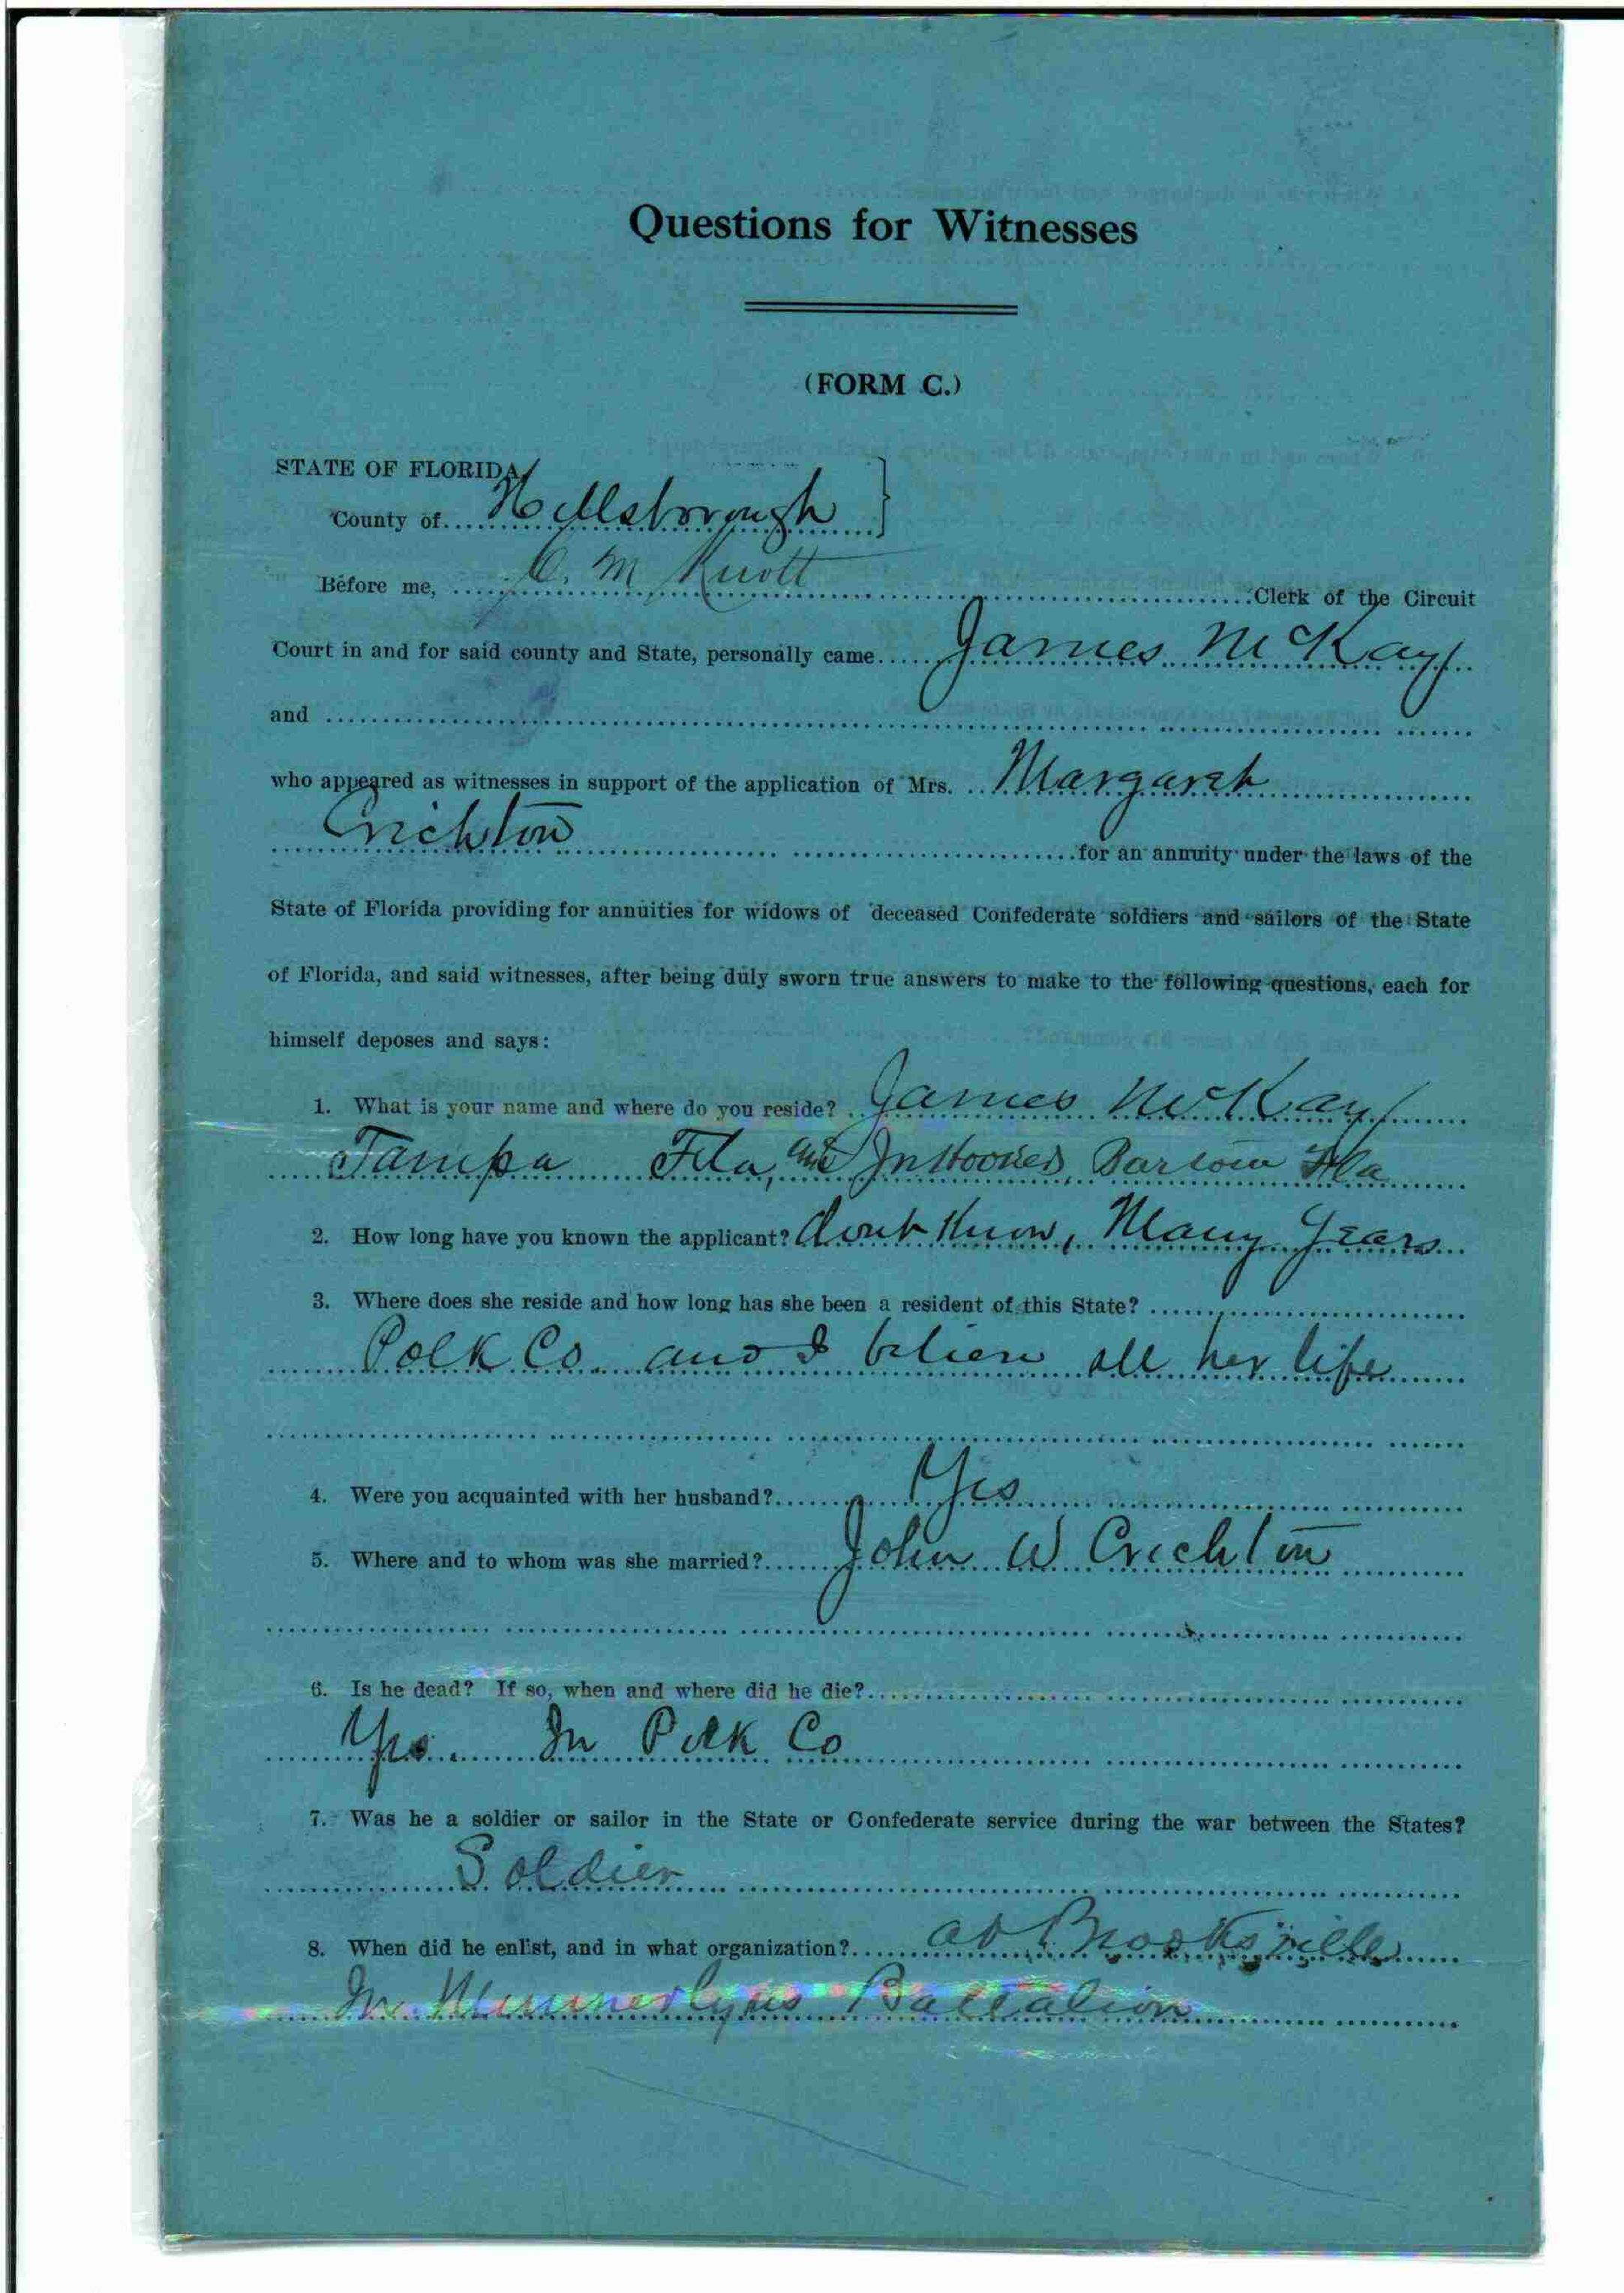 Questions for Witnesses
(FORM C.)
STATE OF FLORIDA,
County of Hillsborough }
Before me, C. M Knott Clerk of the Circuit
Court in and for said county and State, personally came James McKay
and
who appeared as witnesses in support of the application of Mrs. Margaret
Crichton for an annuity under the laws of the
State of Florida providing for annuities for widows of deceased Confederate soldiers and sailors of the State
of Florida, and said witnesses, after being duly sworn true answers to make to the following questions, each for
himself deposes and says:
1. What is your name and where do you reside? James McKay
Tampa Fla, and Bartow Fla
2. How long have you known the applicant? dont Know, Many Years
3. Where does she reside and how long has she been a resident of this State?
Polk Co. and I believe all her life
4. Were you acquainted with her husband? Yes
5. Where and to whom was she married? John W Crichton
6. Is he dead? If so, when and where did he die?
Yes. In Polk Co
7. Was he a soldier or sailor in the State or Confederate service during the war between the States?
Soldier
8. When did he enlist, and in what organization? at Brooksville
In Munnerlyns Battalion